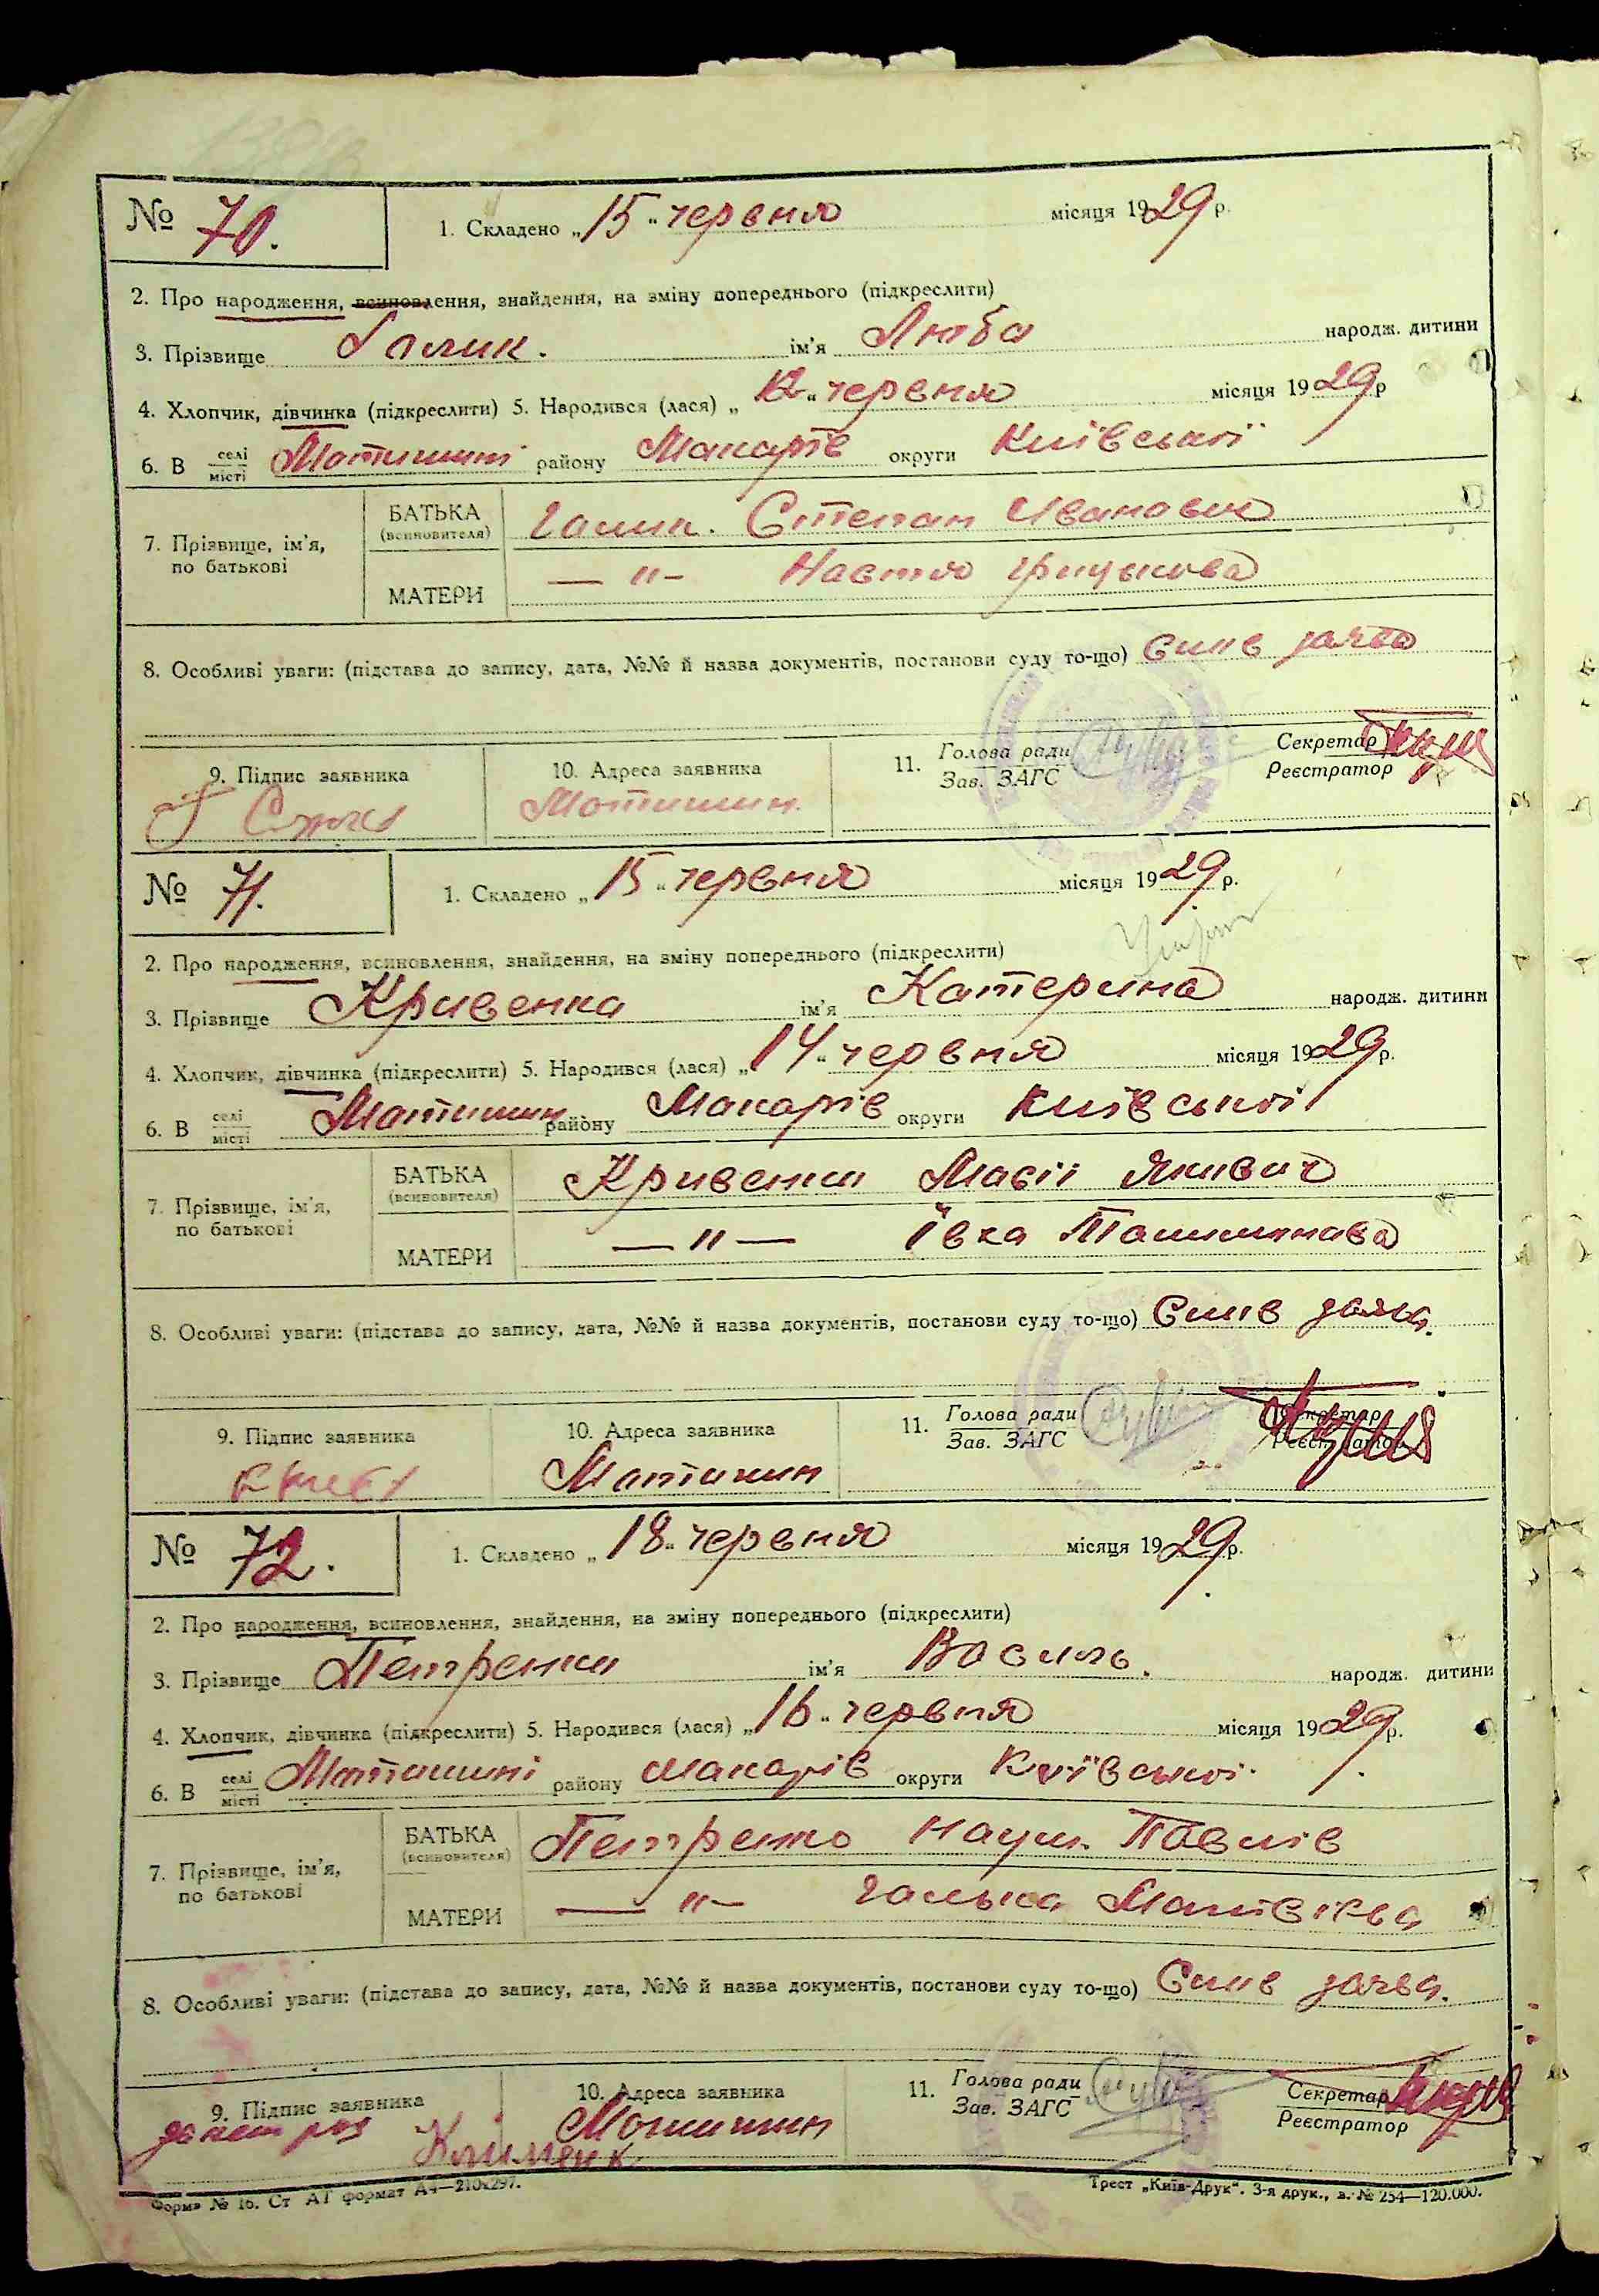 № 70. 1. Складено „15“ червня місяця 1929 р.
2. Про народження, всиновлення, знайдення, на зміну попереднього (підкреслити)
3. Прізвище Галик. ім'я Люба народж. дитини
4. Хлопчик, дівчинка (підкреслити) 5. Народився (лася) „12“ червня місяця 1929 р
6. В селі місті Мотижині району Макарів округи Київської
7. Прізвище, ім'я, по батькові
БАТЬКА (всиновителя) Степан Иванович
МАТЕРИ — " — Настя Грицькова
8. Особливі уваги: (підстава до запису, дата, №№ й назва документів, постанови суду то-що)
9. Підпис заявника 10. Адреса заявника 11. Голова ради Зав. ЗАГС Секретар Реєстратор
Мотижин
№ 71. 1. Складено „15“ червня місяця 1929 р.
2. Про народження, всиновлення, знайдення, на зміну попереднього (підкреслити)
3. Прізвище Кривенка ім'я Катерина народж. дитини
4. Хлопчик, дівчинка (підкреслити) 5. Народився (лася) „14“ червня місяця 1929 р.
6. В селі місті Мотижин району Макарів округи Київської
7. Прізвище, ім'я, по батькові
БАТЬКА (всиновителя) Кривенко Якивич
МАТЕРИ — " — Ївка
8. Особливі уваги: (підстава до запису, дата, №№ й назва документів, постанови суду то-що)
9. Підпис заявника 10. Адреса заявника 11. Голова ради Зав. ЗАГС Секретар Реєстратор
Мотижин
№ 72. 1. Складено „18“ червня місяця 1929 р.
2. Про народження, всиновлення, знайдення, на зміну попереднього (підкреслити)
3. Прізвище Петренко ім'я Василь. народж. дитини
4. Хлопчик, дівчинка (підкреслити) 5. Народився (лася) „16“ червня місяця 1929 р.
6. В селі місті Мотижині району Макарів округи Київської
7. Прізвище, ім'я, по батькові
БАТЬКА (всиновителя) Петренко Наум Павлів
МАТЕРИ — " — Галька Матвієва
8. Особливі уваги: (підстава до запису, дата, №№ й назва документів, постанови суду то-що)
9. Підпис заявника 10. Адреса заявника 11. Голова ради Зав. ЗАГС Секретар Реєстратор
Мотижин
Форма № 16. Ст АТ формат А4—210х297. Трест „Київ-Друк“. 3-я друк., з. № 254—120.000.